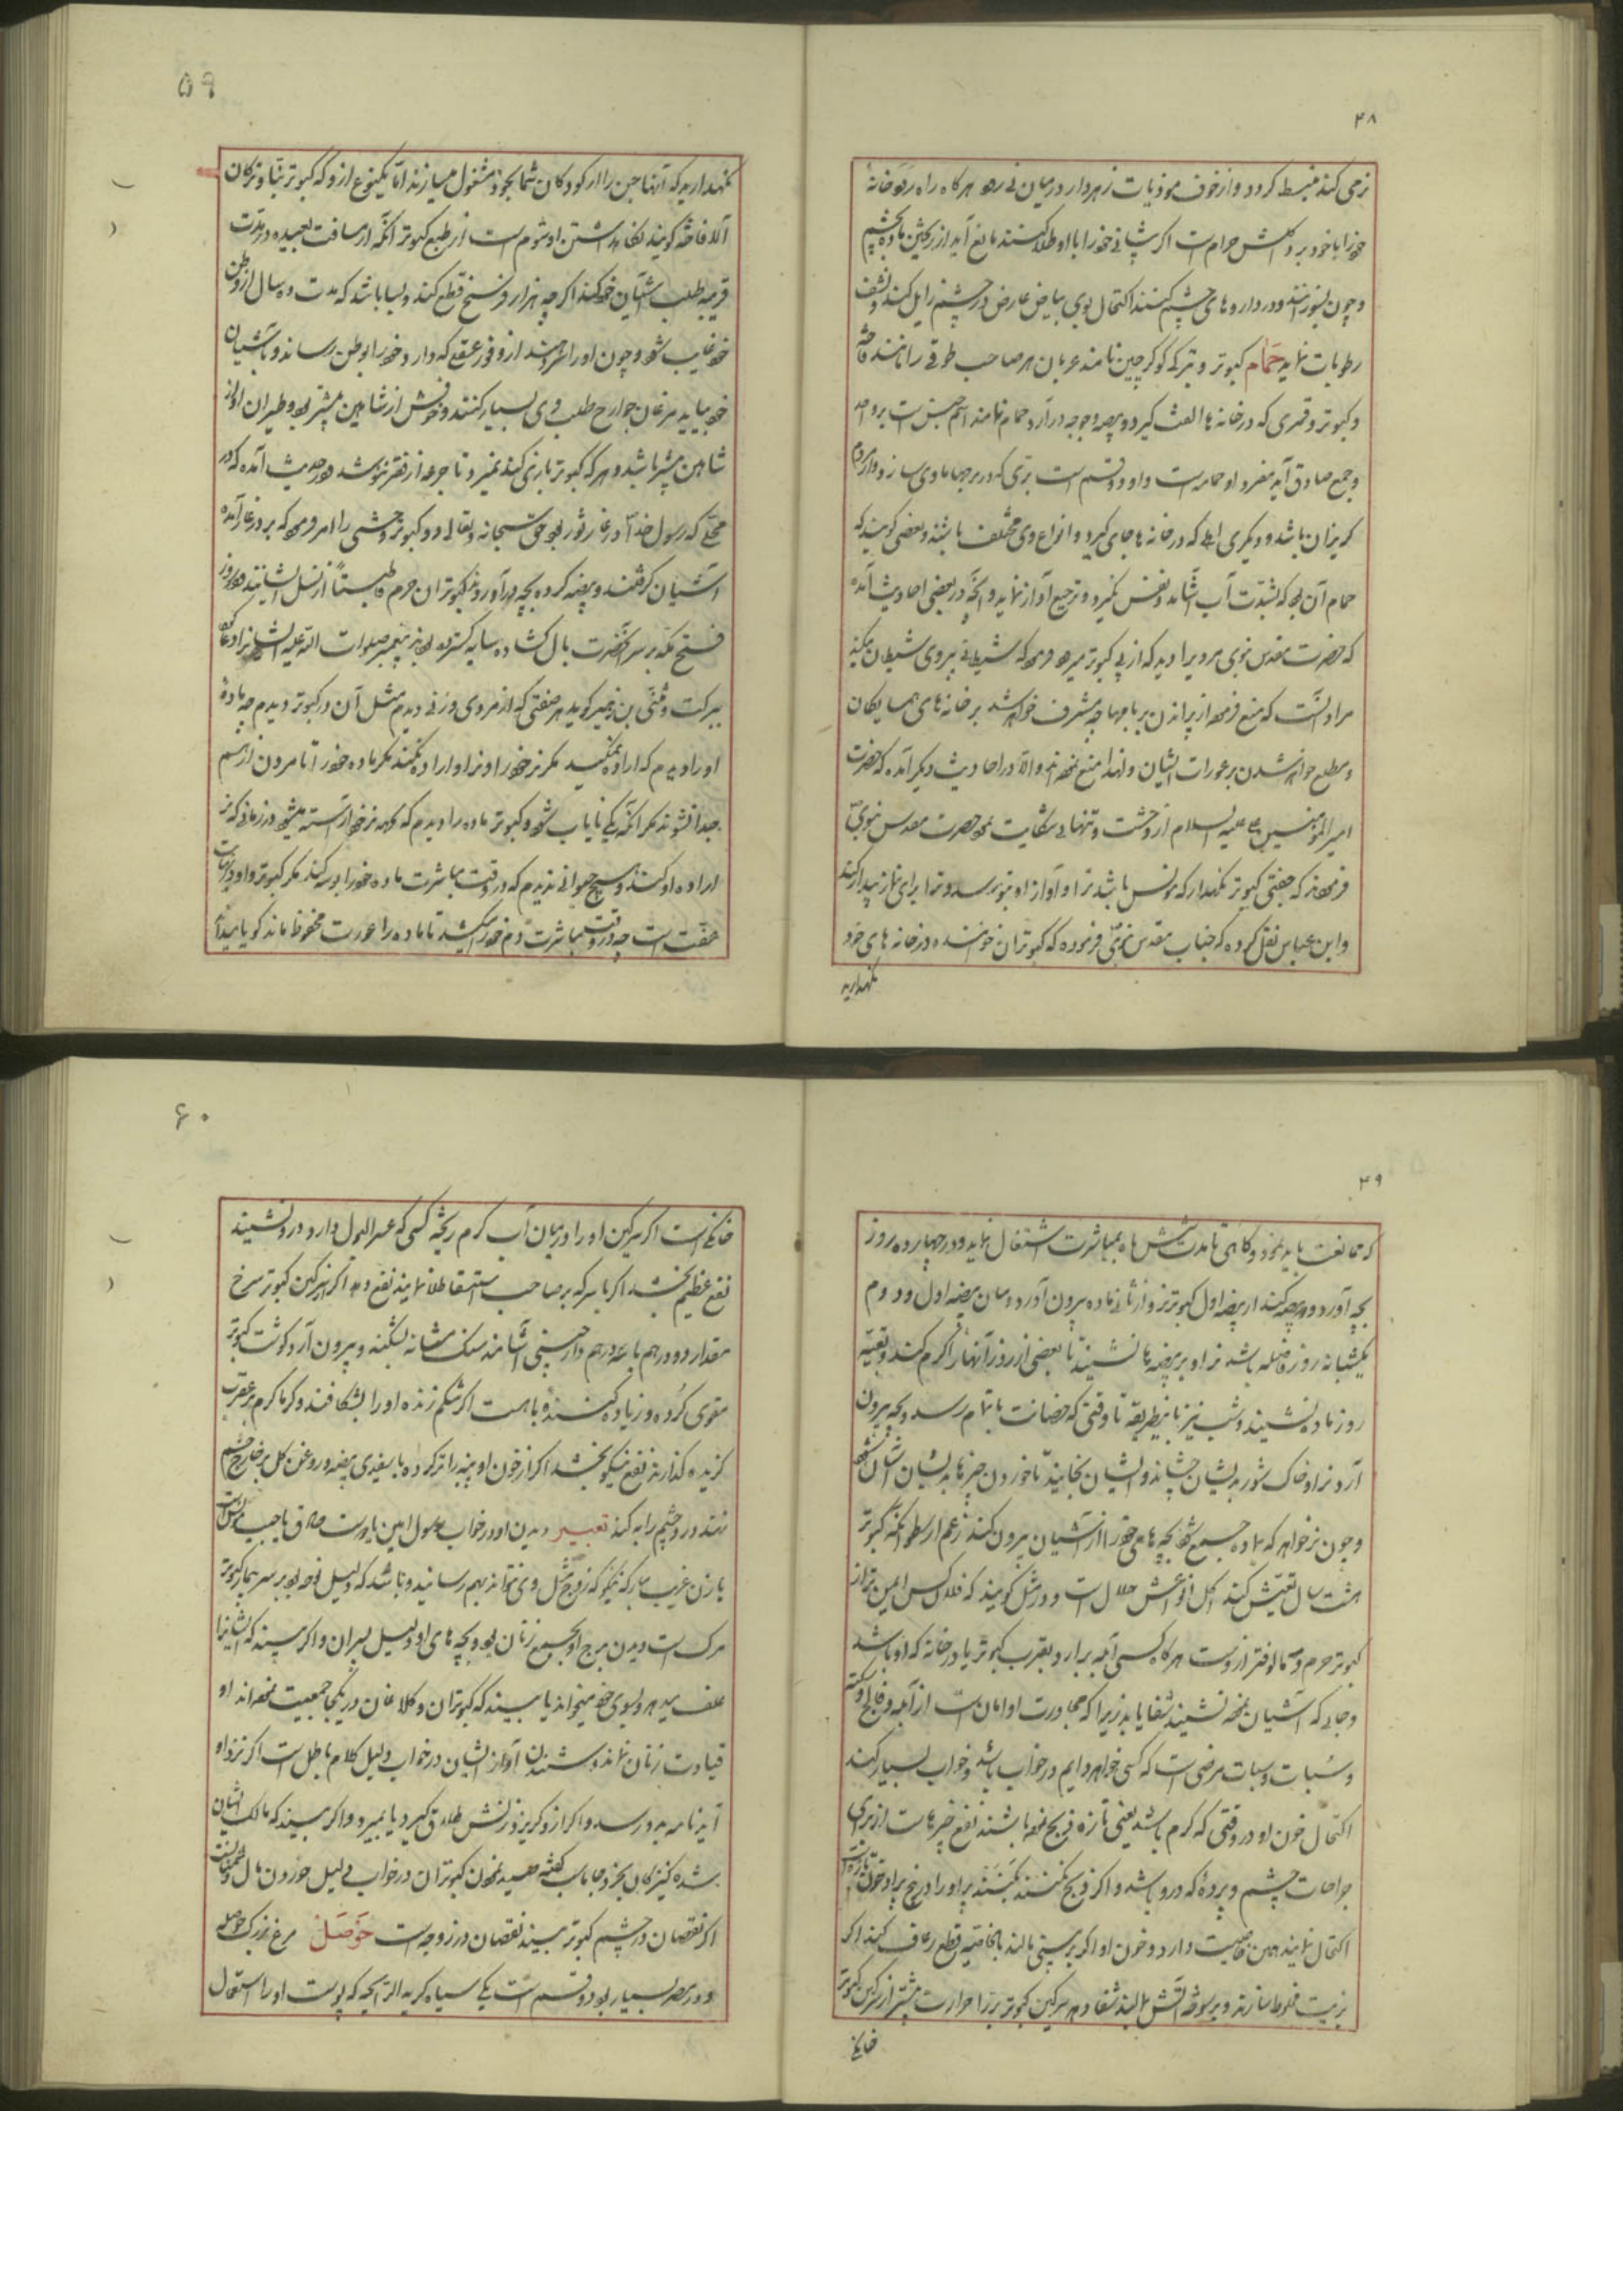 ۴۸
نرمی کند منبسط کردد و از خوف موذیات زهردار در میان نی رود هرکاه راه رود خانهٔ
خودرا با خود برد اکلش حرام است اکر پیشانی خودرا با او طلا کنند مانع آید از ریختن ماده بچشم
و چون بسوزانند و در داروهای چشم کنند اکتحال بوی بیاض عارض در چشم زایل کند و نشف
رطوبات نماید حَمَام کبوتر و بترکی کوکرچین نامند عربان هر صاحب طوقی را مانند فاخته
و کبوتر و قمری که در خانه‌ها الفت کیرد و بیضه و جوجه درآرد حمام نامند اسم جنس است بر واحد
و جمع صادق آید مفرد او حمامه است و او دو قسم است بری که در برجها ماوی سازد و از مردم
کریزان باشد و دیکری اهلی که در خانه‌ها جای کیرد و انواع وی مختلف باشند و بعضی کویند که
حمام آن بود که بشدت آب آشامد و نفس نکیرد و ترجیع آواز نماید و آنچه در بعضی احادیث آمده
که حضرت مقدس نبوی مردیرا دید که از پی کبوتر میرود فرمود که شیطانی پیروی شیطان میکند
مراد آنست که منع فرمود از پراندن بر بامها چه مشرف خواهد شد بر خانه‌های همسایکان
و مطلع خواهد شدن بر عورات ایشان و لهذا منع نموده‌اند و الا در احادیث دیکر آمده که حضرت
امیرالمؤمنین علیه السلام از وحشت و تنهایی شکایت نمود حضرت مقدس نبوی
فرمودند که جفتی کبوتر نکهدار که مونس باشد ترا و آواز او بتو برسد و ترا برای نماز بیدار کند
و ابن عباس نقل کرده که جناب مقدس نبوی فرموده که کبوتران خوانندهٔ در خانه‌های خود
نکهدارید
۵۹
نکهدارید که آنها جن را از کودکان شما بخود مشغول میسازند اما یکنوع از و که کبوتر
آلا فاخته کویند نکاهداشتن او شوم است از طبع کبوتر آنکه از مسافت بعیده در مدت
قریبه طلب آشیان خود کند اکرچه هزار فرسخ قطع کند و بسا باشد که مدت ده سال از وطن
خود غایب شود و چون او را سر دهند از وفور عقلی که دارد خودرا بوطن رساند و بآشیان
خود بیاید مرغان جوارح طلب وی بسیار کنند و خوفش از شاهین بیشتر بود و طیران او از
شاهین بیشتر باشد و هر که کبوتر بازی کند نمیرد تا جرعه از فقر ننوشد و در حدیث آمده که در
محلی که رسول خدا در غار ثور بود حق سبحانه و تعالی دو کبوتر وحشی را امر فرمود که بر در غار آمده
آشیان کرفتند و بیضه کرده بچه درآوردند کبوتران حرم از نسل ایشانند و در روز
فتح مکه بر سر آنحضرت بال کشاده سایه کسترده بودند پیغمبر صلوات الله علیه ایشانرا دعا کرد
ببرکت و مثنی بن زهیر کوید هر صفتی که از مردی و زنی دیدم مثل آن در کبوتر دیدم چه مادهٔ
او را دیدم که اراده نمیکند مکر نر خودرا و نر او اراده نمیکند مکر ماده خودرا تا مردن از هم
جدا نشوند مکر آنکه یکی نایاب شود و کبوتر ماده را دیدم که از نر خود آراسته میشود در زمانی که نر
اراده او کند و هیچ حیوانی ندیدم که در وقت مباشرت ماده خودرا بوسه کند مکر کبوتر و او
عفت است چه در وقت مباشرت دم خود میکشد تا ماده را عورت محفوظ ماند کویا
۴۹
که ممانعت باید نمود و کاهی تا مدت شش ماه بمباشرت اشتغال نماید و در چهارده روز
بچه آورد و دو بیضه کند از بیضه اول کبوتر نر و از ثانی ماده بیرون آورد و میان بیضه اول و دوم
یکشبانه روز فاصله باشد نر او بر بیضه‌ها نشیند تا بعضی از روز آنها را کرم کند و بقیهٔ
روز ماده نشیند و شب نیز باینطریقه تا وقتی که حضانت باتمام رسد و بچه بیرون
آرد نر او خاک شور بایشان چشاند و ایشان بخایند تا خوردن چیزها بر ایشان آسان شود
و چون نر خواهد که بماده جمع شود بچه‌های خودرا از آشیان بیرون کند زعم ارسطو آنکه کبوتر
هشت سال تعیش کند اکل انواعش حلال است و در مثل کویند که فلان کس امین تر از
کبوتر حرم و مالوفتر ازوست هرکاه کسی آبله برآرد بقرب کبوتر یا در خانه که او باشد
و جایی که آشیان نموده نشیند شفا یابد زیرا که مجاورت او امان است از آبله و فالج و سکته
و سُبات و سبات مرضی است که کسی خواهد دایم در خواب باشد و خواب بسیار کند
اکتحال خون او در وقتی که کرم باشد یعنی تازه ذبح نموده باشند نفع چیزهاست از برای
جراحات چشم و پردهٔ که در او باشد و اکر ذبح نکنند بکنند پر او را در بیخ پر او خون
اکتحال نمایند همین خاصیت دارد و خون او اکر بر بینی مالند بالخاصیه قطع رعاف کند اکر
بزیت مخلوط سازند و بر سوخته آتش مالند شفا دهد سرکین کبوتر بریرا حرارت بیشتر از سرکین کبوتر
خانکی
۶۰
خانکی است اکر سرکین او را در میان آب کرم ریخته کسی که عسر البول دارد در او نشیند
نفع عظیم بخشد اکر با سرکه بر صاحب استسقا طلا نمایند نفع دهد اکر سرکین کبوتر سرخ
مقدار دو درهم با سه درهم دارچینی آشامند سنک مثانه بشکند و بیرون آرد کوشت کبوتر
مقوی کُرده و زیاده کننده باهست اکر شکم زنده او را بشکافند و کرماکرم بر عقرب
کزیده کذارند نفع نیکو بخشد اکر از خون او پنبه را تر کرده با سفیدی بیضه و روغن کل بر خارج چشم
نهند درد چشم را به کند تعبیر دیدن او در خواب رسول امین یا دوست صادق یا حبیب مونس است
یا زن غریب مبارکه نیکو که زوج مثل وی نتواند بهم رسانید و باشد که دلیل نوحه بود بر سر بیمار کبوتر
مرک است و دیدن برج او مجمع زنان بود و بچه‌های او دلیل پسران و اکر بیند که ایشانرا
علف میدهد و بسوی خود میخواند یا بیند که کبوتران و کلاغان در یکجا جمعیت نموده‌اند او
قیادت زنان نماید و شنیدن آواز ایشان در خواب دلیل کلام باطل است اکر نزد او
آید نامه بدو رسد و اکر از و کریزد زنش طلاق کیرد یا بمیرد و اکر بیند که مالک ایشان
شده کنیزکان بخرد جاماسب کفته صید نمودن کبوتران در خواب دلیل خوردن مال
اکر نقصان در چشم کبوتر بیند نقصان در زوجه است حَوصَلْ مرغ بزرک حوصله
و در مصر بسیار بود و دو قسم است یکی سیاه کریه الرایحه که پوست او را استعمال